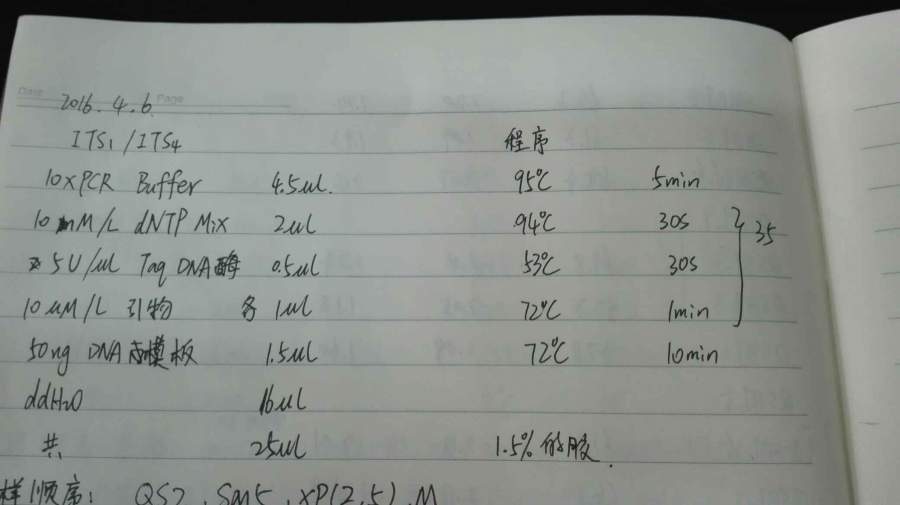 Date Page
2016.4.6
ITS1/ITS4 程序
10xPCR Buffer 4.5ul. 95℃ 5min
10 mM/L dNTP Mix 2ul 94℃ 30s 35
5U/ul Taq DNA酶 0.5ul 53℃ 30s
10uM/L 引物 各 1ul 72℃ 1min
50ng DNA模板 1.5ul 72℃ 10min
ddH2O 16ul
共 25ul 1.5%的胶.
样顺序: QS2, Sam5, XP(2,5), M